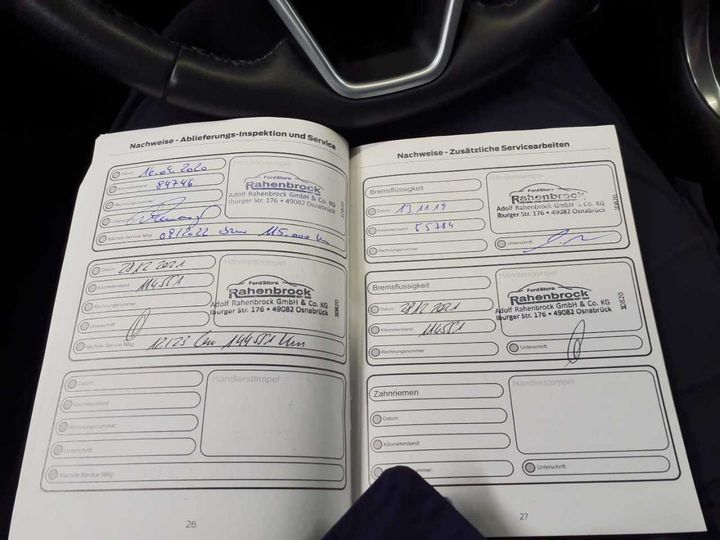 Nachweise - Ablieferungs-Inspektion und Service
Datum 16.09.2020
Kilometerstand 84746
Rechnungsnummer
Unterschrift
Händlerstempel
FordStore
Rahenbrock
Adolf Rahenbrock GmbH & Co. KG
Iburger Str. 176 • 49082 Osnabrück
Nächste Service fällig: 09/2022 115.000 km
Datum 28.12.2021
Kilometerstand 114551
Rechnungsnummer
Unterschrift
FordStore
Rahenbrock
Adolf Rahenbrock GmbH & Co. KG
Iburger Str. 176 • 49082 Osnabrück
Nächste Service fällig: 12/23 144551 km
Datum
Kilometerstand
Rechnungsnummer
Unterschrift
Händlerstempel
Nächste Service fällig:
26
Nachweise - Zusätzliche Servicearbeiten
Bremsflüssigkeit
Datum 13.11.19
Kilometerstand 55784
Rechnungsnummer
FordStore
Rahenbrock
Adolf Rahenbrock GmbH & Co. KG
Iburger Str. 176 • 49082 Osnabrück
Unterschrift
Bremsflüssigkeit
Datum 28.12.2021
Kilometerstand 114551
Rechnungsnummer
FordStore
Rahenbrock
Adolf Rahenbrock GmbH & Co. KG
Iburger Str. 176 • 49082 Osnabrück
Unterschrift
Zahnriemen
Datum
Kilometerstand
nummer
Händlerstempel
Unterschrift
27